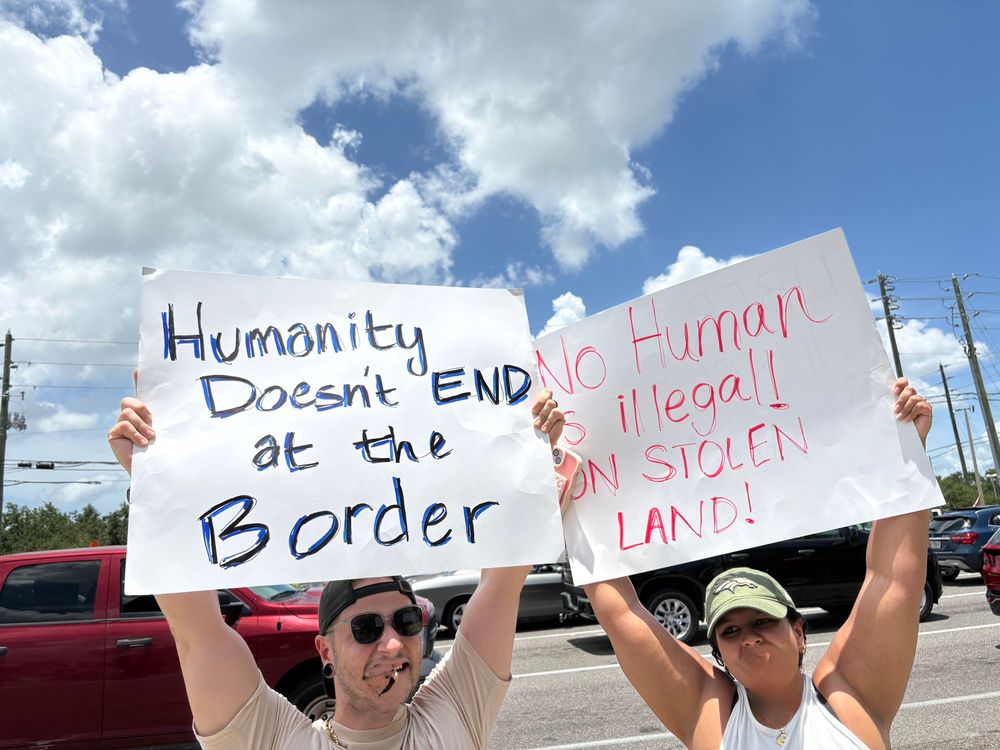 Humanity
Doesn't END
at the
Border
No Human
is illegal!
ON STOLEN
LAND!